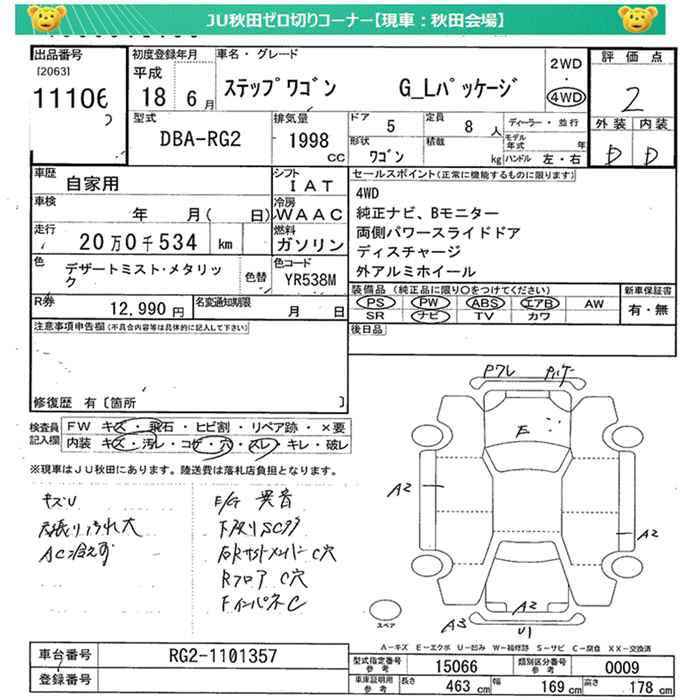 JU秋田ゼロ切りコーナー【現車：秋田会場】
出品番号
[2063]
11106
初度登録年月
平成
18 6月
車名・グレード
ステップワゴン G_Lパッケージ
2WD
・
4WD
評価点
2
外装 内装
D D
型式
DBA-RG2
排気量
1998
CC
ドア
5
定員
8人
形状
ワゴン
積載
kg
ディーラー・並行
モデル年式 年
ハンドル 左・右
車歴
自家用
シフト
IAT
車検
年 月( 日)
冷房
WAAC
走行
20万0千534 km
燃料
ガソリン
色
デザートミスト・メタリック
色替
色コード
YR538M
R券
12,990円
名変通知期限
月 日
セールスポイント(正常に機能するものに限ります)
4WD
純正ナビ、Bモニター
両側パワースライドドア
ディスチャージ
外アルミホイール
装備品（純正品に限り○をつけてください）
PS PW ABS エアB AW
SR ナビ TV カワ
新車保証書
有・無
後日品
注意事項申告欄(不具合内容等は具体的に記入して下さい)
修復歴 有〔箇所 〕
検査員記入欄
FW キズ・飛石・ヒビ割・リペア跡・×要
内装 キズ・汚レ・コゲ・穴・スレ・キレ・破レ
※現車はJU秋田にあります。陸送費は落札店負担となります。
キズU
内張り汚れ大
AC冷えず
E/G 異音
下廻りSCサ
Rフロア C穴
FインパネC
E
A2
A2
A2
A3
U1
スペア
A－キズ E－エクボ U－凹み W－補修跡 S－サビ C－腐食 XX－交換済
車台番号
RG2-1101357
登録番号
型式指定番号
参考
15066
類別区分番号
参考
0009
車庫証明用
参考
長さ 463cm
幅 169cm
高さ 178cm